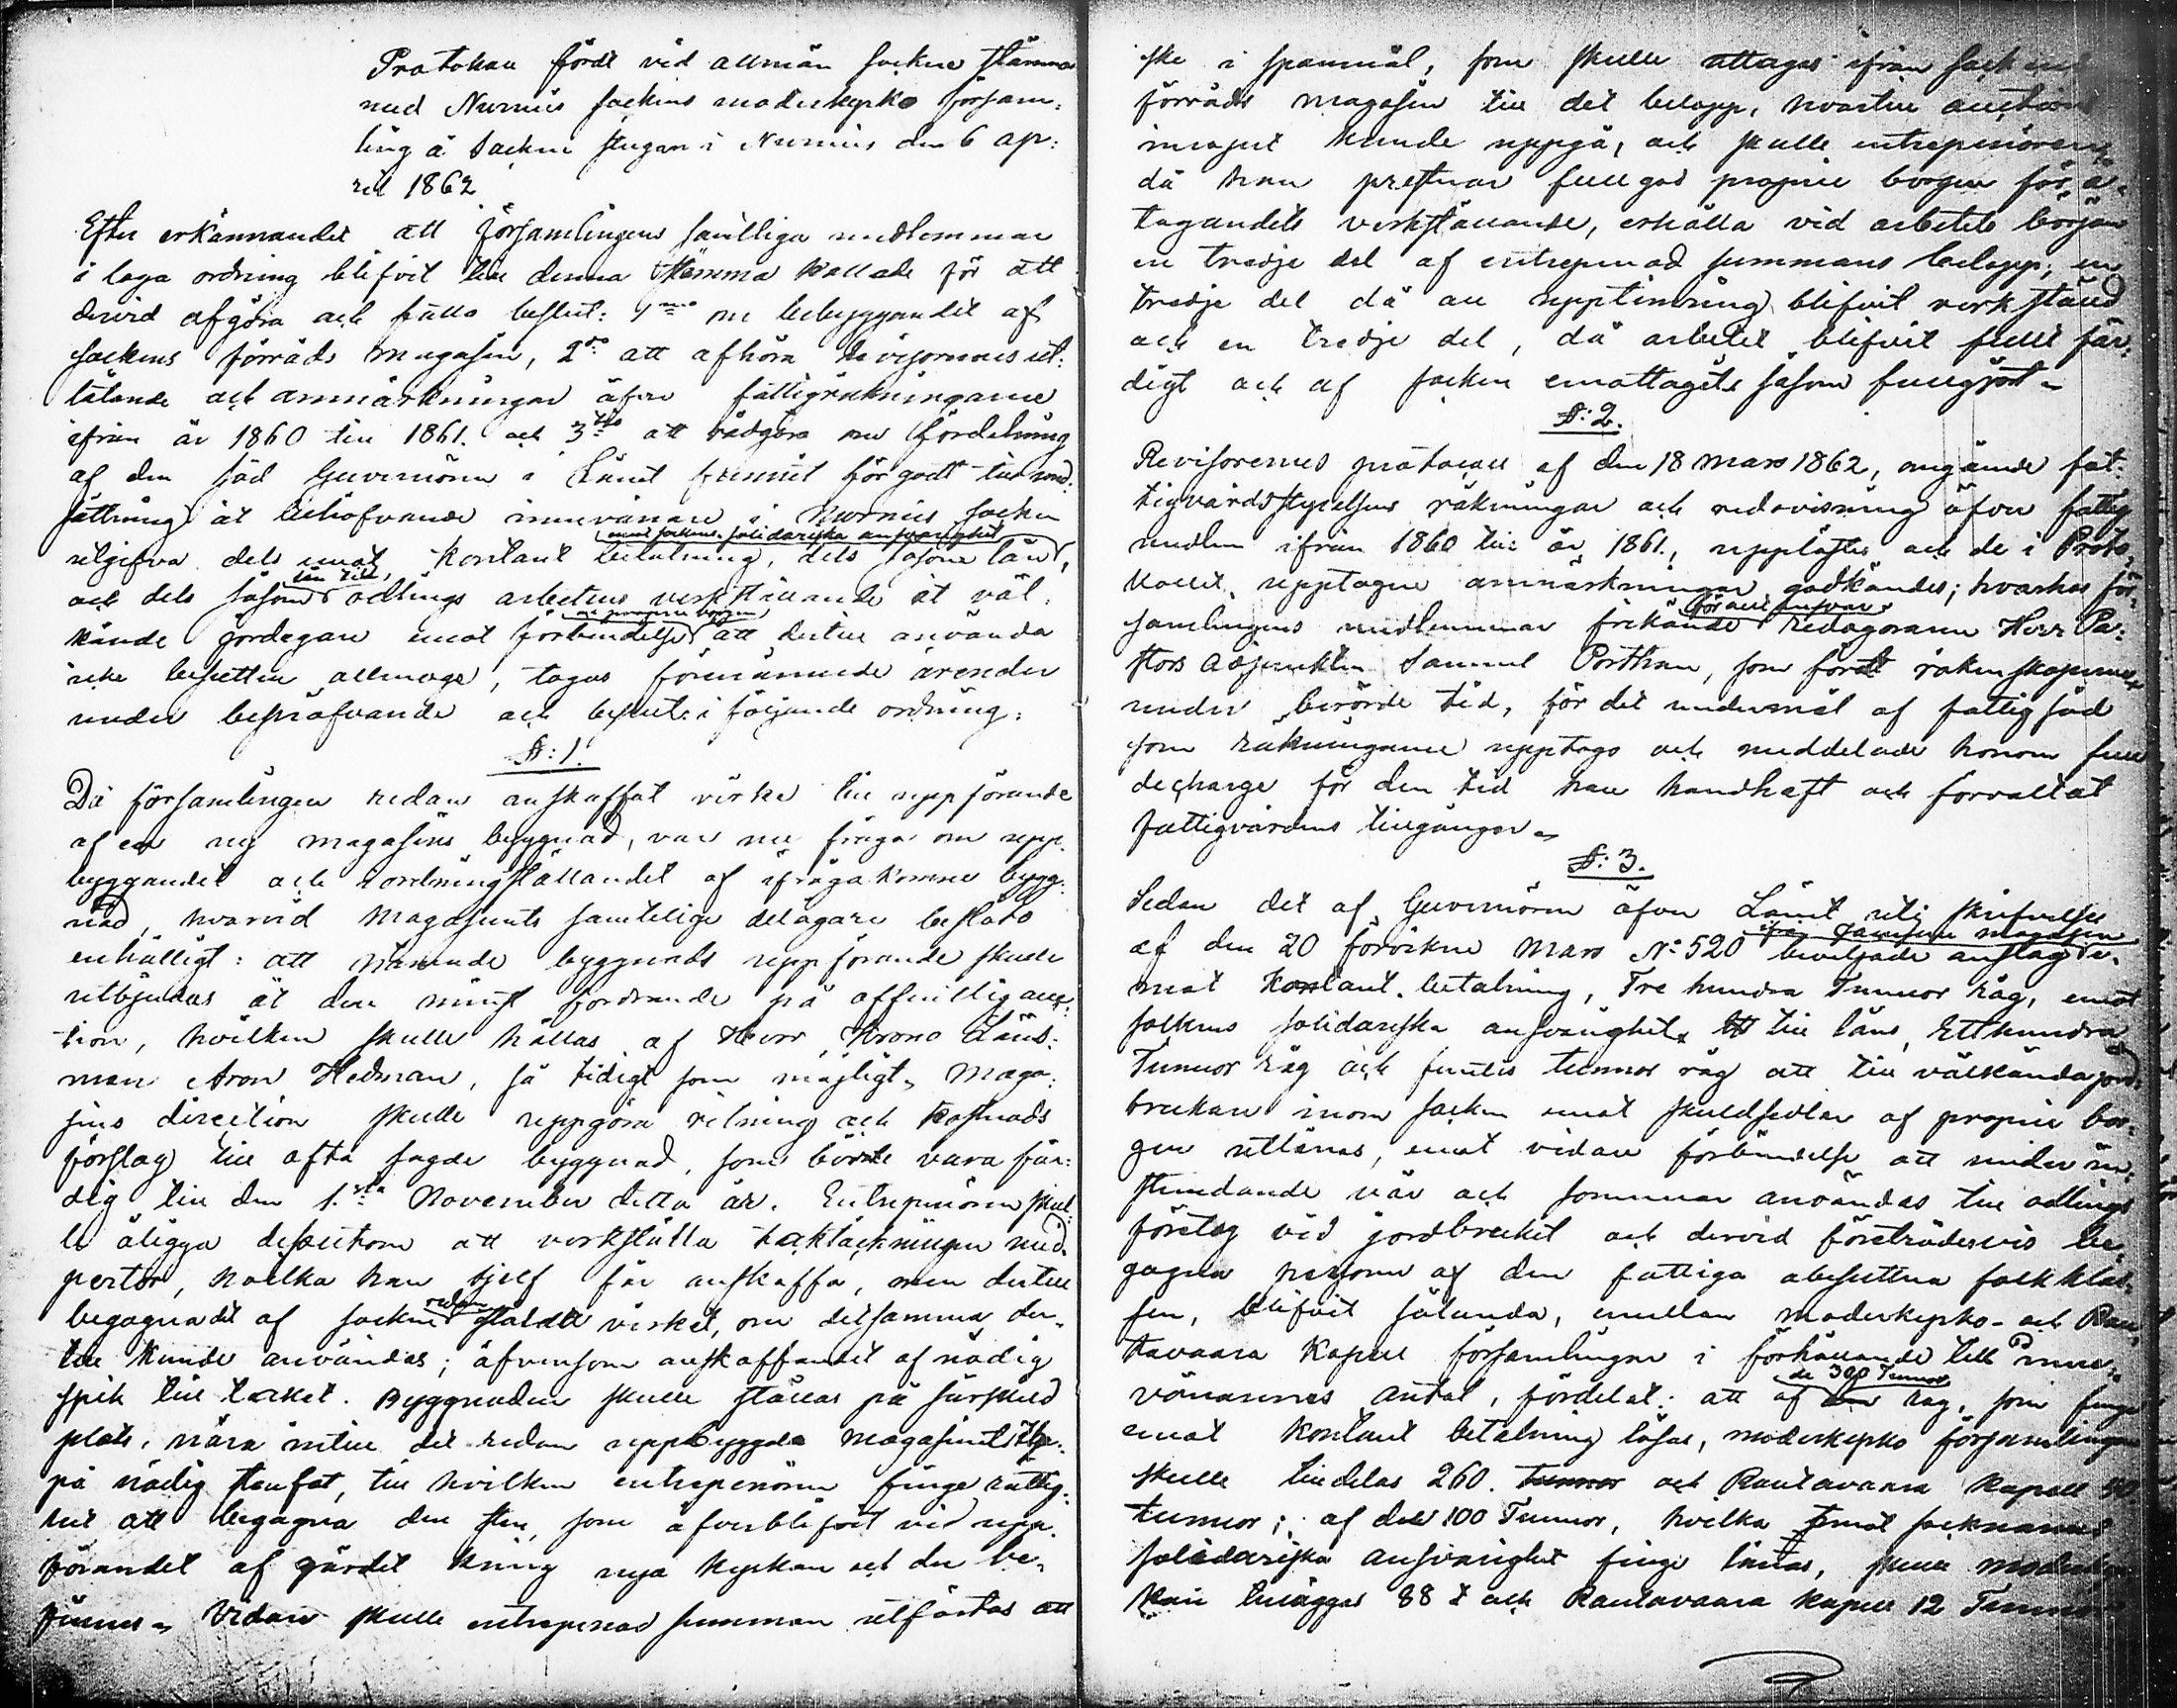 Protokoll fördt vid allmän socknestämma
med Nurmis sockens moderkyrko försam=
ling å Sockne stugan i Nurmis den 6 ap=
ril 1862
Efter erkännandet att församlingens samtlliga medlemmar
i laga ordning blifvit till denna stämma kallade för att
dervid afgöra och fatta beslut: 1mo om bebyggandet af
sockens förråds magasin, 2do att afhöra Revisorernes ut=
låtande och anmärkningar öfver fattigräkningarne
ifrån år 1860 till 1861. och 3tio att rådgöra om fördelning
af den säd Guvernörn i Länet funnit för godt till und=
sättning åt behöfvande innevånare i Nurmis socken
emot sockens solidariska ansvarighet
utgifva dels emot kontant betalning, dels såsom lån,
lån till
och dels såsom odlings arbetens verkställande åt väl=
och proprieborgen
kände jordegare emot förbindelse att dertill använda
icke besutten allmoge, togos förenämnde ärender
under bepröfvande och beslut i följande ordning:
§: 1.
Då församlingen redan anskaffat virke till uppförande
af en ny magasins byggnad, var nu fråga om upp=
byggandet och iordningställandet af ifrågakomne bygg=
nad, hvarvid Magasinets samtelige delägare beslöto
enhälligt: att nämnde byggnads uppförande skulle
utbjudas åt den minst fordrande på offentlig auk=
tion, hvilken skulle hållas af Herr Krono Läns=
man Aron Hedman, så tidigt som möjligt. Maga=
sins direction skulle uppgöra ritning och kostnads
förslag till ofta sagde byggnad, som börde vara fär=
dig till den 1sta November detta år. Entreprenören skul=
le åligga dessutom att verkställa taktäckningen med
pertor, hvilka han sjelf får anskaffa, men dertill
redan
begagna det af socknen stälda virket, om detsamma der=
till kunde användas; äfvensom anskaffandet af nödig
spik till taket. Byggnaden skulle ställas på särskild
plats, nära intill det redan uppbyggda magasinet
på nödig stenfot, till hvilken entreprenören finge rättig=
het att begagna den sten, som öfverblifvit vid upp=
förandet af gärdet kring nya kyrkan och der be=
finnes. Vidare skulle entreprenad summan utfästas att
ske i spannmål, som skulle uttagas ifrån sockens
förråds magasin till det belopp, hvartill auctions
inropet kunde uppgå, och skulle entreprenören,
då han presterar fullgod proprie borgen för å=
tagandets verkställande, erhålla vid arbetets början
en tredje del af entreprenad summans belopp, en
tredje del då all upptimring blifvit verkställd
och en tredje del, då arbetet blifvit fullt fär=
digt och af socken emottagits såsom fullgjort.
§: 2.
Revisorernes protocoll af den 18 Mars 1862, angående fat=
tigvårdsstyrelsens räkningar och redovisning öfver fattig
medlen ifrån 1860 till år 1861., upplästes och de i Proto=
kollet upptagne anmärkningar godkändes; hvarhos för=
för allt ansvar
samlingens medlemmar frikände redogöraren Herr Pa=
stors Adjunkten Samuel Porthan, som fördt räkenskaperne
under berörde tid, för det undermål af fattigsäd
som räkningarne upptogo och meddelade honom full
decharge för den tid han handhaft och förvaltat
fattigvårdens tillgångar.
§: 3.
Sedan det af Guvernörn öfver Länet uti skrifvelse
ifrån Joensuu magasin
af den 20 förvikne Mars No 520 beviljade anslag e=
mot Kontant betalning, Tre hundra Tunnor råg, emot
sockens solidariska ansvarighet till låns, Etthundra
Tunnor råg och femtio tunnor råg att till välkända jord=
brukare inom socken emot skuldsedlar af proprie bor=
gen utlånas, emot vidare förbindelse att under in=
stundande vår och sommar användas till odlings
företag vid jordbruket och dervid företrädesvis be=
gagna personer af den fattiga obesuttna folkklas=
sen, blifvit sålunda, emellan moderkyrko- och Rau=
tavaara Kapell församlingar i förhållande till inne=
de 300 Tunnor
vånarnes antal, fördelat: att af råg, som finge
emot kontant betalning lösas, moderkyrko församlingen
skulle tilldelas 260. Tunnor och Rautavaara Kapell 40
tunnor; af de 100 Tunnor, hvilka emot socknarnes
solidariska ansvarighet finge lånas, skulle moder
kan tilläggas 88 t och Rautavaara kapell 12 Tunnor